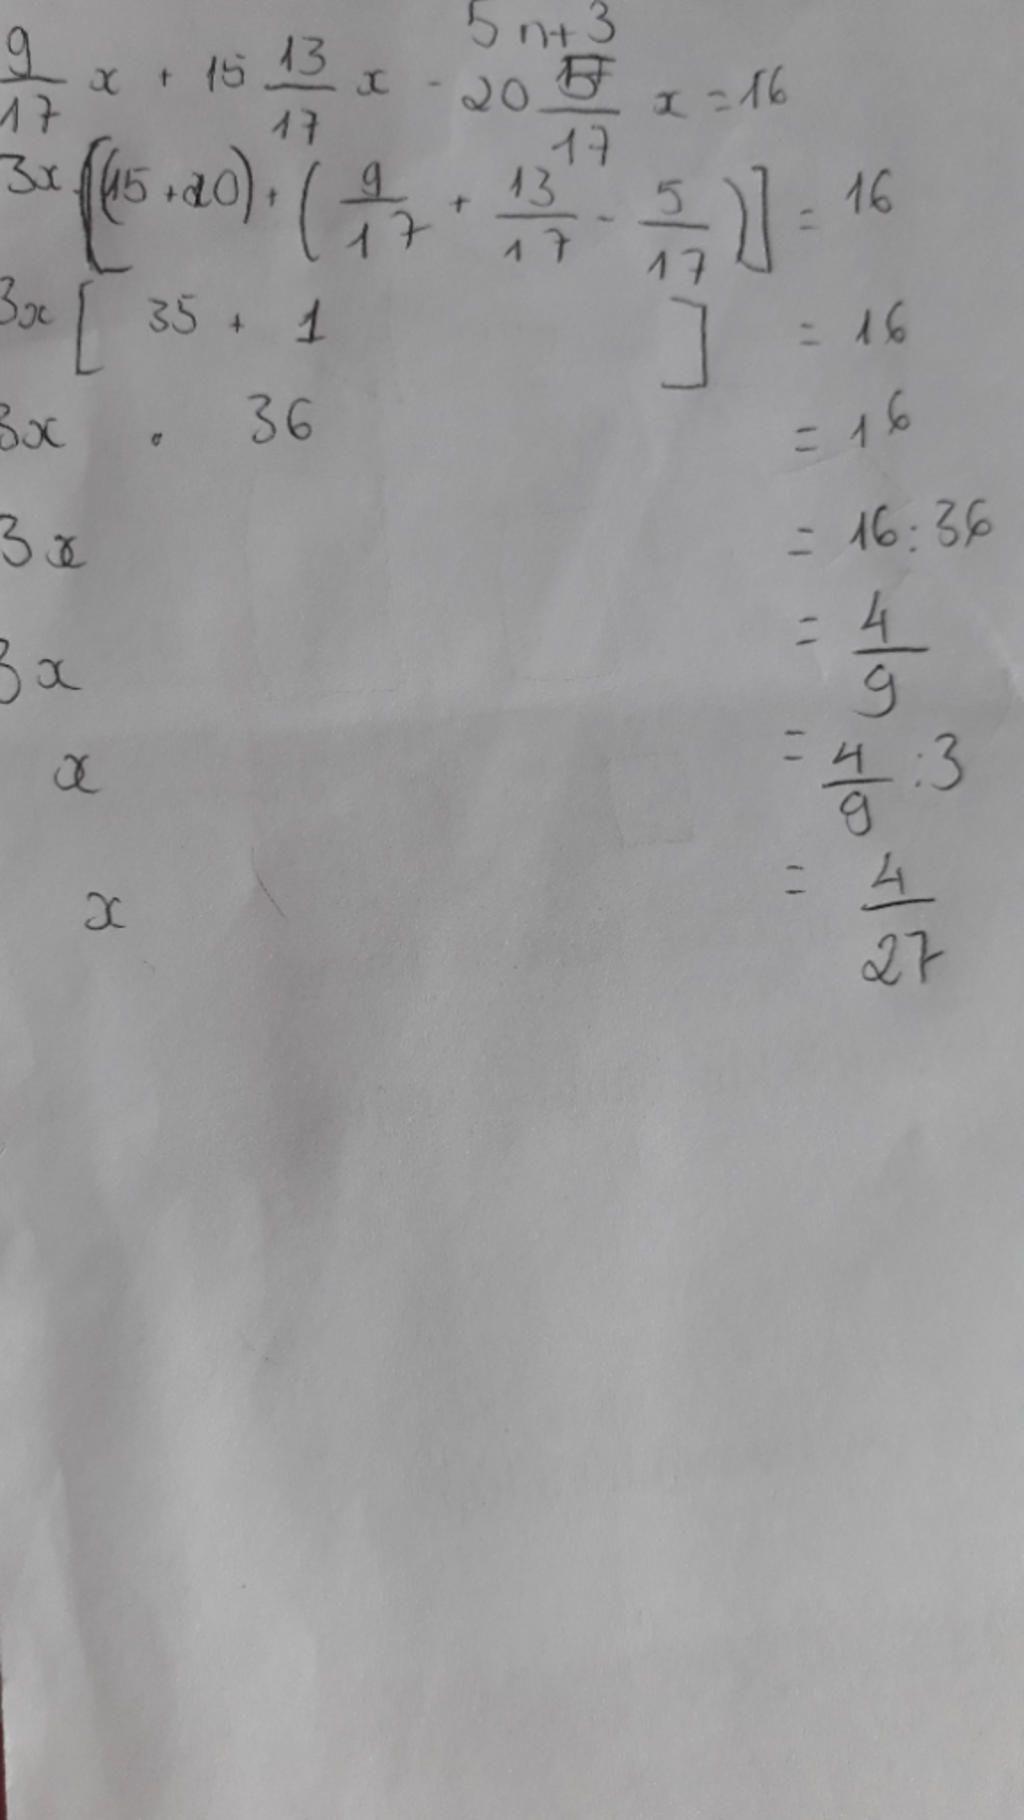 5 n+3
9/17 x + 15 13/17 x - 20 /17 x = 16
3x [(15 + 20) + (9/17 + 13/17 - 5/17)] = 16
3x [ 35 + 1 ] = 16
3x . 36 = 16
3x = 16 : 36
3x = 4/9
x = 4/9 : 3
x = 4/27